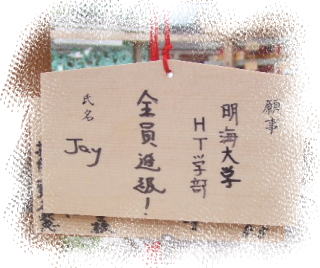 願事
明海大学
HT学部
全員進級!
氏名
Jay